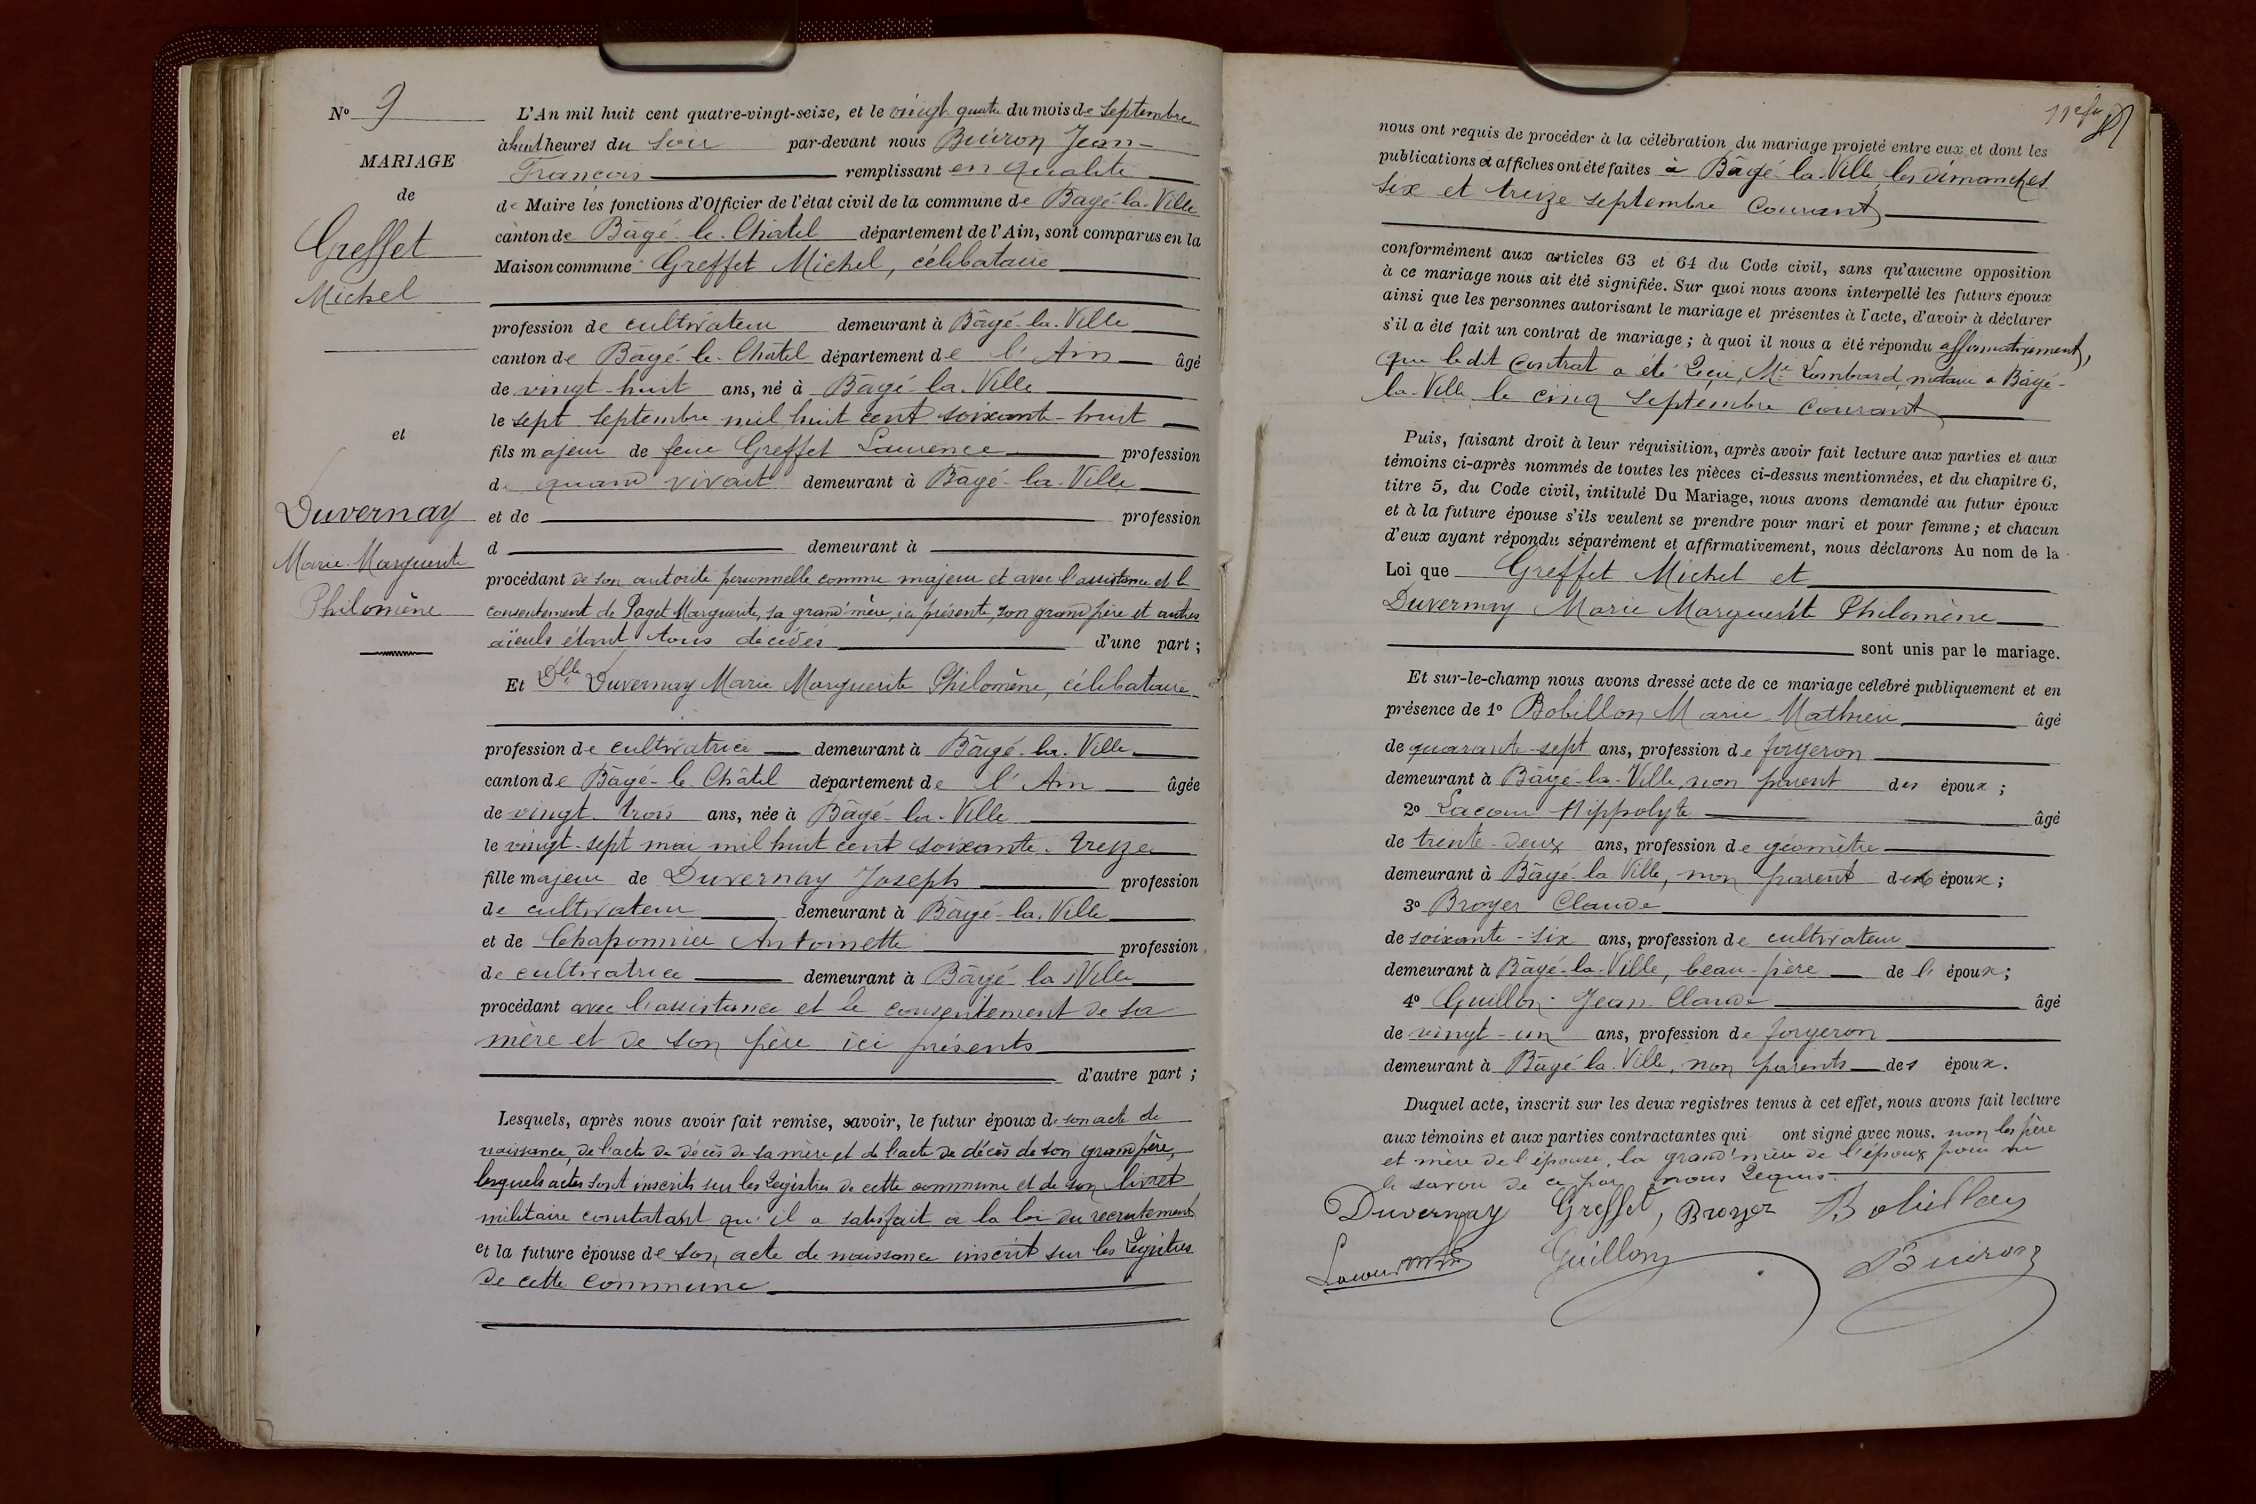 N° 9
MARIAGE
de
Greffet
Michel
et
Duvernay
Marie Marguerite
Philomène
L'An mil huit cent quatre-vingt-seize, et le vingt quatre du mois de septembre
à huit heures du soir par-devant nous Buiron Jean-
François remplissant en qualité
de Maire les fonctions d'Officier de l'état civil de la commune de Bâgé-la-Ville
canton de Bâgé-le-Châtel département de l'Ain, sont comparus en la
Maison commune Greffet Michel, célibataire
profession de cultivateur demeurant à Bâgé-la-Ville
canton de Bâgé-le-Châtel département de l'Ain âgé
de vingt-huit ans, né à Bâgé-la-Ville
le sept septembre mil huit cent soixante-huit
fils majeur de feue Greffet Laurence profession
d quand vivait demeurant à Bâgé-la-Ville
et de profession
d demeurant à
procédant de son autorité personnelle comme majeur et avec l'assistance et le
consentement de Paget Marguerite, sa grand'mère, ici présente, son grand père et autres
aïeuls étant tous décédés d'une part ;
Et Dlle Duvernay Marie Marguerite Philomène, célibataire
profession de cultivatrice demeurant à Bâgé-la-Ville
canton de Bâgé-le-Châtel département de l'Ain âgée
de vingt-trois ans, née à Bâgé-la-Ville
le vingt-sept mai mil huit cent soixante-treize
fille majeur de Duvernay Joseph profession
de cultivateur demeurant à Bâgé-la-Ville
et de Chaponnier Antoinette profession
de cultivatrice demeurant à Bâgé la Ville
procédant avec l'assistance et le consentement de sa
mère et de son père ici présents
d'autre part ;
Lesquels, après nous avoir fait remise, savoir, le futur époux de son acte de
naissance, de l'acte de décès de sa mère et de l'acte de décès de son grand père,
lesquels actes sont inscrits sur les Registres de cette commune et de son livret
militaire constatant qu'il a satisfait à la loi du recrutement
et la future épouse de son acte de naissance inscrit sur les Registres
de cette commune
nous ont requis de procéder à la célébration du mariage projeté entre eux et dont les
publications et affiches ont été faites à Bâgé-la-Ville les dimanches
six et treize septembre courant
conformément aux articles 63 et 64 du Code civil, sans qu'aucune opposition
à ce mariage nous ait été signifiée. Sur quoi nous avons interpellé les futurs époux
ainsi que les personnes autorisant le mariage et présentes à l'acte, d'avoir à déclarer
s'il a été fait un contrat de mariage ; à quoi il nous a été répondu affirmativement,
que ledit contrat a été reçu, Me Lombard, notaire à Bâgé-
la-Ville le cinq septembre courant
Puis, faisant droit à leur réquisition, après avoir fait lecture aux parties et aux
témoins ci-après nommés de toutes les pièces ci-dessus mentionnées, et du chapitre 6,
titre 5, du Code civil, intitulé Du Mariage, nous avons demandé au futur époux
et à la future épouse s'ils veulent se prendre pour mari et pour femme ; et chacun
d'eux ayant répondu séparément et affirmativement, nous déclarons Au nom de la
Loi que Greffet Michel et
Duvernay Marie Marguerite Philomène
sont unis par le mariage.
Et sur-le-champ nous avons dressé acte de ce mariage célébré publiquement et en
présence de 1° Bobillon Marie Mathieu âgé
de quarante-sept ans, profession de forgeron
demeurant à Bâgé-la-Ville, non parent des époux ;
2° Lacour Hippolyte âgé
de trente-deux ans, profession de géomètre
demeurant à Bâgé la Ville, non parent des époux ;
3° Broyer Claude
de soixante-six ans, profession de cultivateur
demeurant à Bâgé-la-Ville, beau-père de l'époux ;
4° Guillon Jean Claude âgé
de vingt-un ans, profession de forgeron
demeurant à Bâgé la Ville, non parents des époux.
Duquel acte, inscrit sur les deux registres tenus à cet effet, nous avons fait lecture
aux témoins et aux parties contractantes qui ont signé avec nous. non les père
et mère de l'épouse, la grand'mère de l'époux pour ne
le savoir de ce par nous requis.
Duvernay Greffet, Broyer Bobillon
Lacour Guillon Buiron